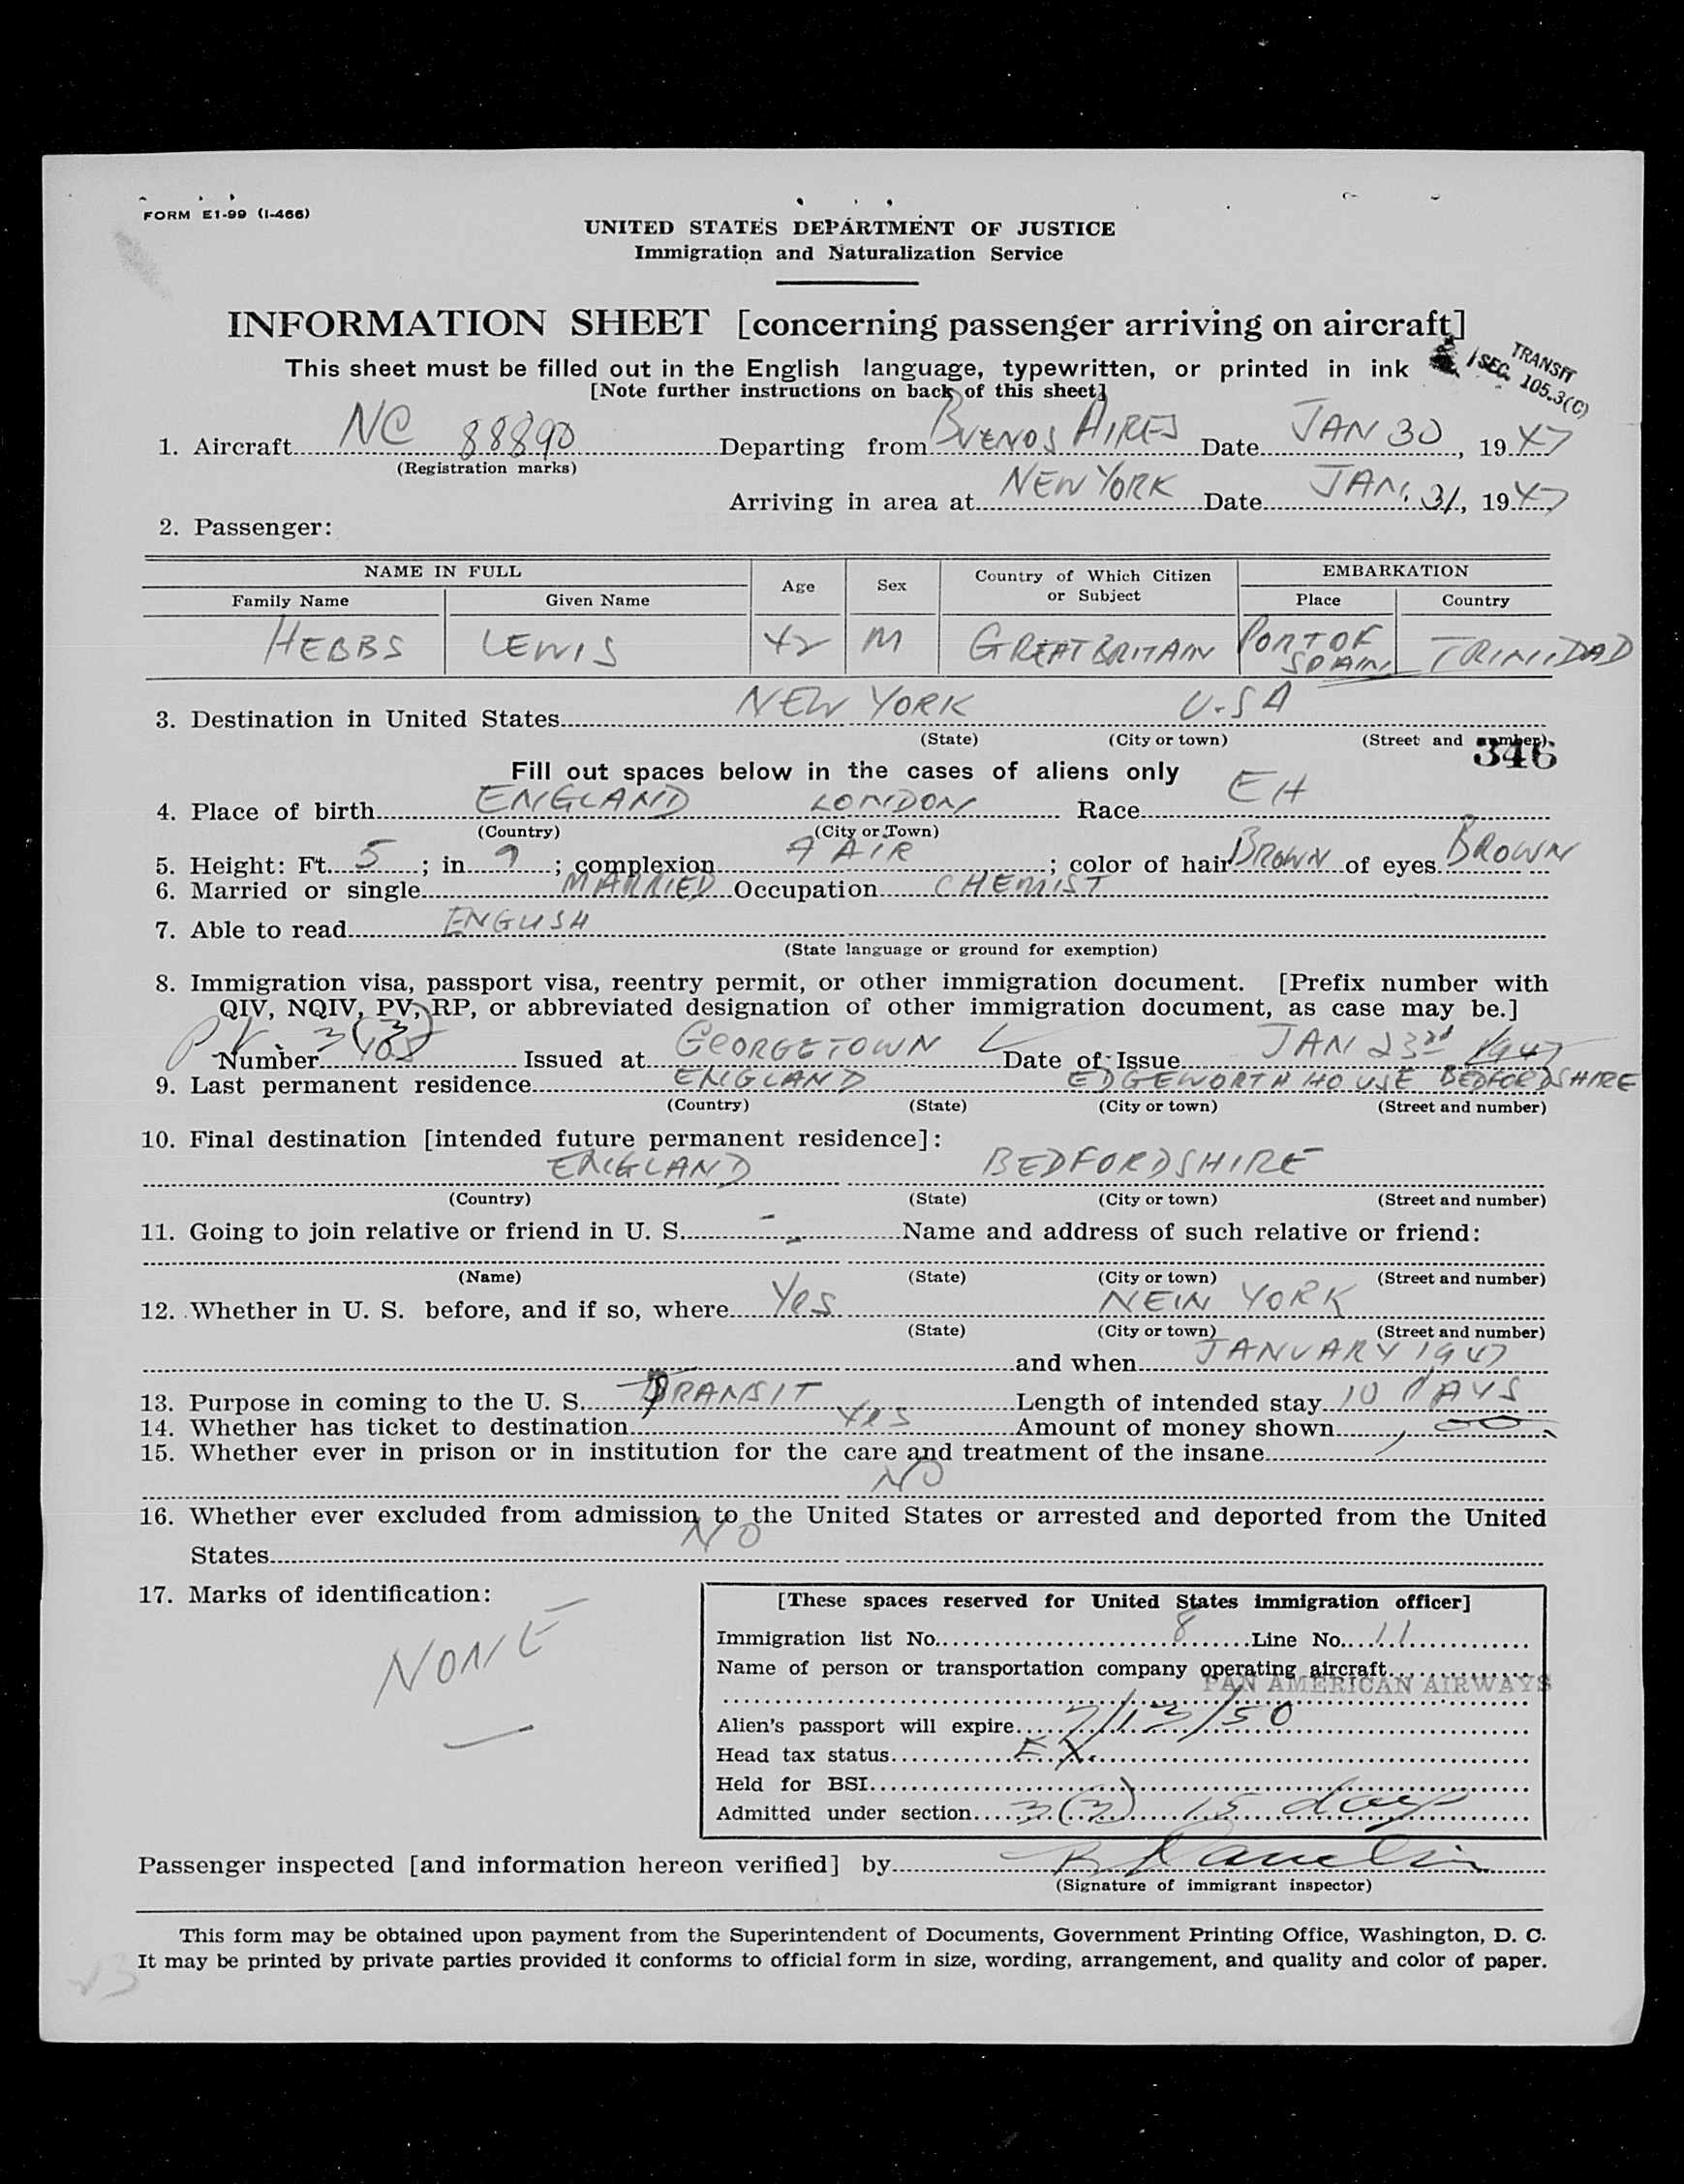 FORM E1-99 (I-466)
UNITED STATES DEPARTMENT OF JUSTICE
Immigration and Naturalization Service
INFORMATION SHEET [concerning passenger arriving on aircraft]
This sheet must be filled out in the English language, typewritten, or printed in ink
TRANSIT
SEC. 105.3(C)
[Note further instructions on back of this sheet]
1. Aircraft NC 88890 Departing from BUENOS AIRES Date JAN 30, 1947
(Registration marks)
Arriving in area at NEW YORK Date JAN. 31, 1947
2. Passenger:
NAME IN FULL Age Sex Country of Which Citizen or Subject EMBARKATION
Family Name Given Name Place Country
HEBBS LEWIS 42 M GREAT BRITAIN PORT OF SPAIN TRINIDAD
3. Destination in United States NEW YORK U.S A
(State) (City or town) (Street and number)
346
Fill out spaces below in the cases of aliens only
4. Place of birth ENGLAND LONDON Race EH
(Country) (City or Town)
5. Height: Ft. 5; in. 9; complexion FAIR; color of hair BROWN of eyes BROWN
6. Married or single MARRIED Occupation CHEMIST
7. Able to read ENGLISH
(State language or ground for exemption)
8. Immigration visa, passport visa, reentry permit, or other immigration document. [Prefix number with
QIV, NQIV, PV, RP, or abbreviated designation of other immigration document, as case may be.]
PV. 3(3)
Number 105 Issued at GEORGETOWN Date of Issue JAN 23rd 1947
9. Last permanent residence ENGLAND EDGEWORTH HOUSE BEDFORDSHIRE
(Country) (State) (City or town) (Street and number)
10. Final destination [intended future permanent residence]:
ENGLAND BEDFORDSHIRE
(Country) (State) (City or town) (Street and number)
11. Going to join relative or friend in U. S. - Name and address of such relative or friend:
(Name) (State) (City or town) (Street and number)
12. Whether in U. S. before, and if so, where Yes NEW YORK
(State) (City or town) (Street and number)
and when JANUARY 1947
13. Purpose in coming to the U. S. TRANSIT Length of intended stay 10 DAYS
14. Whether has ticket to destination Yes Amount of money shown
15. Whether ever in prison or in institution for the care and treatment of the insane
NO
16. Whether ever excluded from admission to the United States or arrested and deported from the United
States NO
17. Marks of identification:
NONE
[These spaces reserved for United States immigration officer]
Immigration list No. 8 Line No. 11
Name of person or transportation company operating aircraft
PAN AMERICAN AIRWAYS
Alien's passport will expire 7/13/50
Head tax status EX.
Held for BSI
Admitted under section 3(3) 15 days
Passenger inspected [and information hereon verified] by
(Signature of immigrant inspector)
This form may be obtained upon payment from the Superintendent of Documents, Government Printing Office, Washington, D. C.
It may be printed by private parties provided it conforms to official form in size, wording, arrangement, and quality and color of paper.